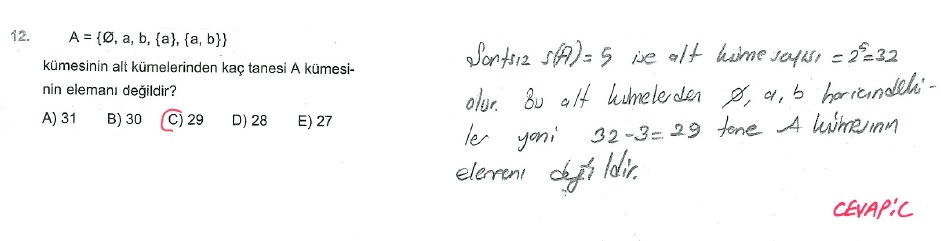 12. A = {Ø, a, b, {a}, {a, b}}
kümesinin alt kümelerinden kaç tanesi A kümesi-
nin elemanı değildir?
A) 31 B) 30 C) 29 D) 28 E) 27
s(A) = 5 ise alt küme sayısı = 2⁵=32
olur. Bu alt kümelerden Ø, a, b haricindeki-
ler yani 32-3=29 tane A kümesinin
elemanı değildir.
CEVAP:C